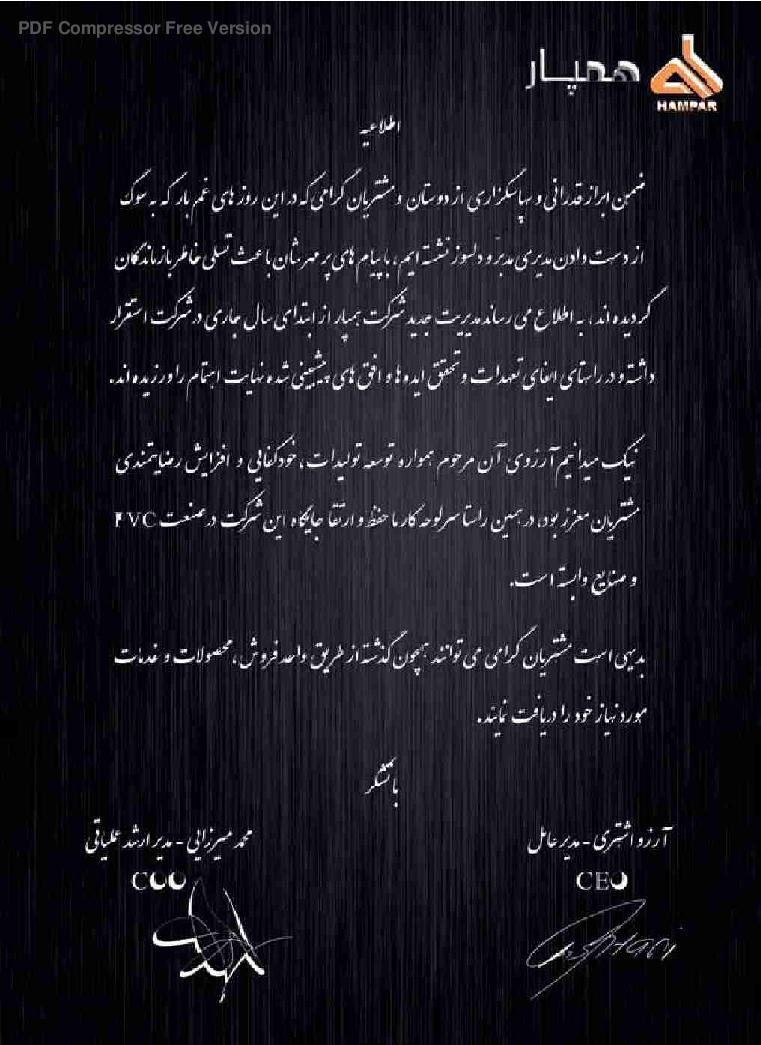 PDF Compressor Free Version
همپار
HAMPAR
اطلاعیه
ضمن ابراز قدردانی و سپاسگزاری از دوستان و مشتریان گرامی که در این روز های غم بار که به سوگ
از دست دادن مدیری مدبر و دلسوز نشسته ایم، با پیام های پر مهرشان باعث تسلی خاطر بازماندگان
گردیده اند، به اطلاع می رساند مدیریت جدید شرکت همپار از ابتدای سال جاری در شرکت استقرار
داشته و در راستای ایفای تعهدات و تحقق ایده ها و افق های پیشبینی شده نهایت اهتمام را ورزیده اند.
نیک میدانیم آرزوی آن مرحوم همواره توسعه تولیدات، خودکفایی و افزایش رضایتمندی
مشتریان معزز بود، در همین راستا سرلوحه کار ما حفظ و ارتقا جایگاه این شرکت در صنعت PVC
و صنایع وابسته است.
بدیهی است مشتریان گرامی می توانند همچون گذشته از طریق واحد فروش، محصولات و خدمات
مورد نیاز خود را دریافت نمایند.
با تشکر
آرزو اشتری - مدیر عامل
CEO
محمد میرزایی - مدیر ارشد عملیاتی
COO